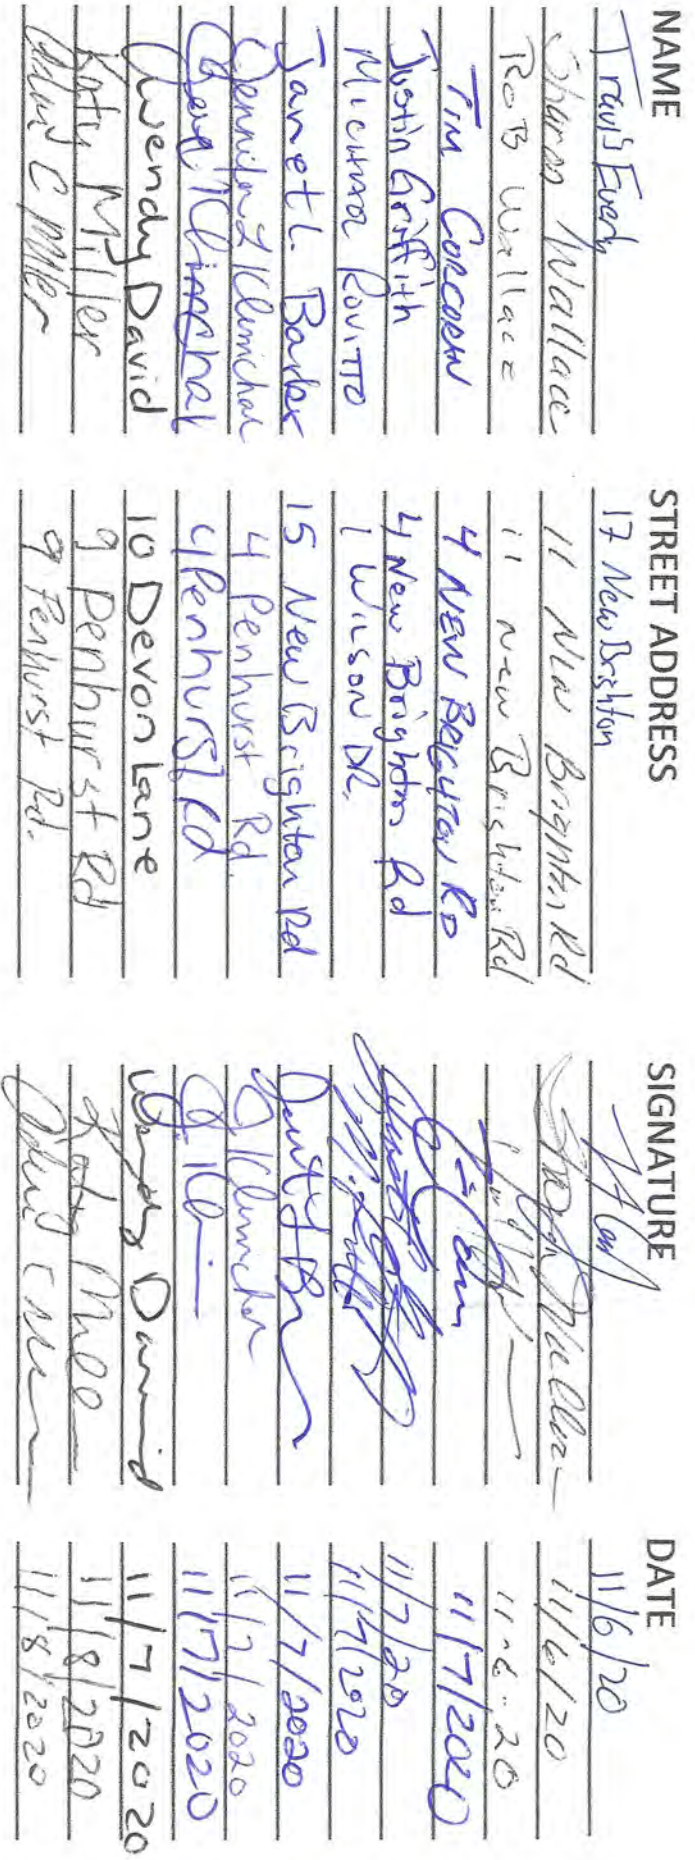 NAME STREET ADDRESS SIGNATURE DATE
Travis 17 New Brighton 11/6/20
Sharon Wallace 11 New Brighton Rd 11/6/20
Rob Wallace 11 New Brighton Rd 11-6-20
Tim Corcoran 4 NEW BRIGHTON RD 11/7/2020
Justin Griffith 4 New Brighton Rd 11/7/20
MICHAEL ROVITTO 1 WILSON DR. 11/7/2020
Janet L. Barber 15 New Brighton Rd 11/7/2020
Jennifer L Klimchak 4 Penhurst Rd. J Klimchak 11/7/2020
Klimchak 4 Penhurst Rd 11/7/2020
Wendy David 10 Devon Lane Wendy David 11/7/2020
Katy Miller 9 Penhurst Rd Katy Mill 11/8/2020
David C Miller 9 Penhurst Rd. David C 11/8/2020